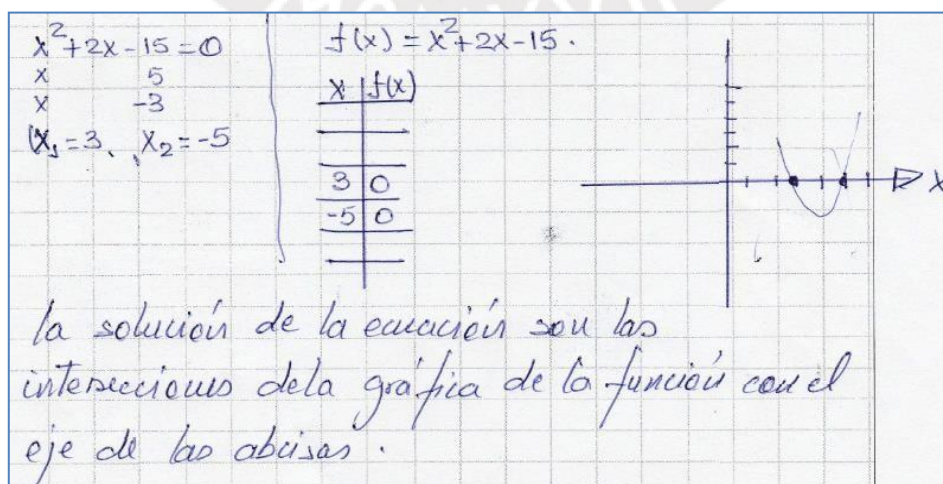 x²+2x-15=0
x 5
x -3
x₁=3, x₂=-5
f(x)=x²+2x-15.
x f(x)
3 0
-5 0
X
la solución de la ecuación son las
intersecciones dela gráfica de la función con el
eje de las abcisas.